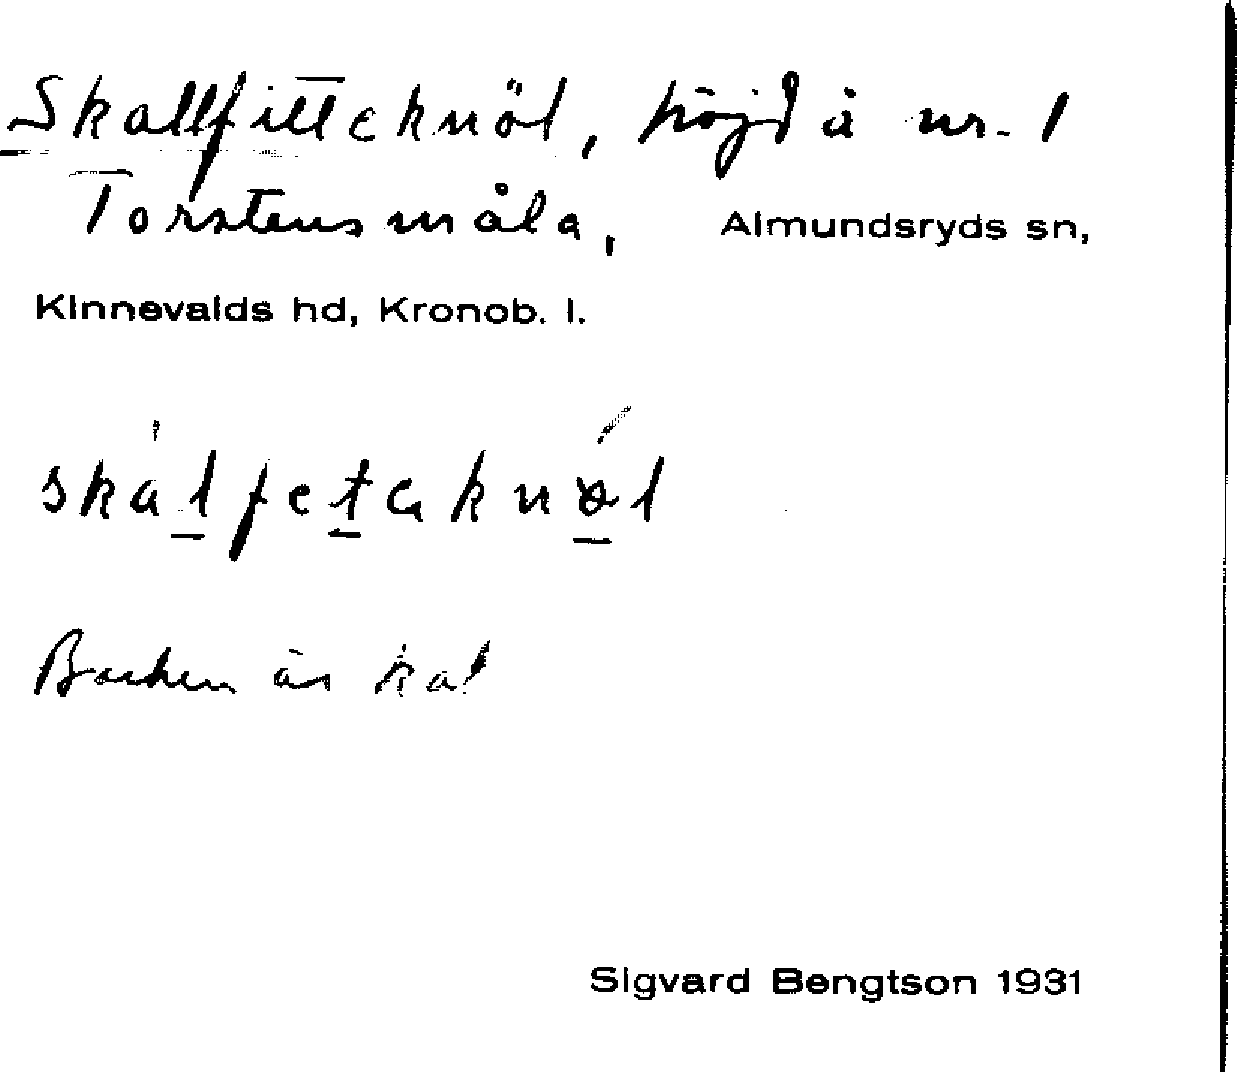 Skallfitteknöl, höjd å nr. 1
Torstensmåla, Almundsryds sn,
Kinnevalds hd, Kronob. l.
skálfetaknǿl
Backen är kal
Sigvard Bengtson 1931